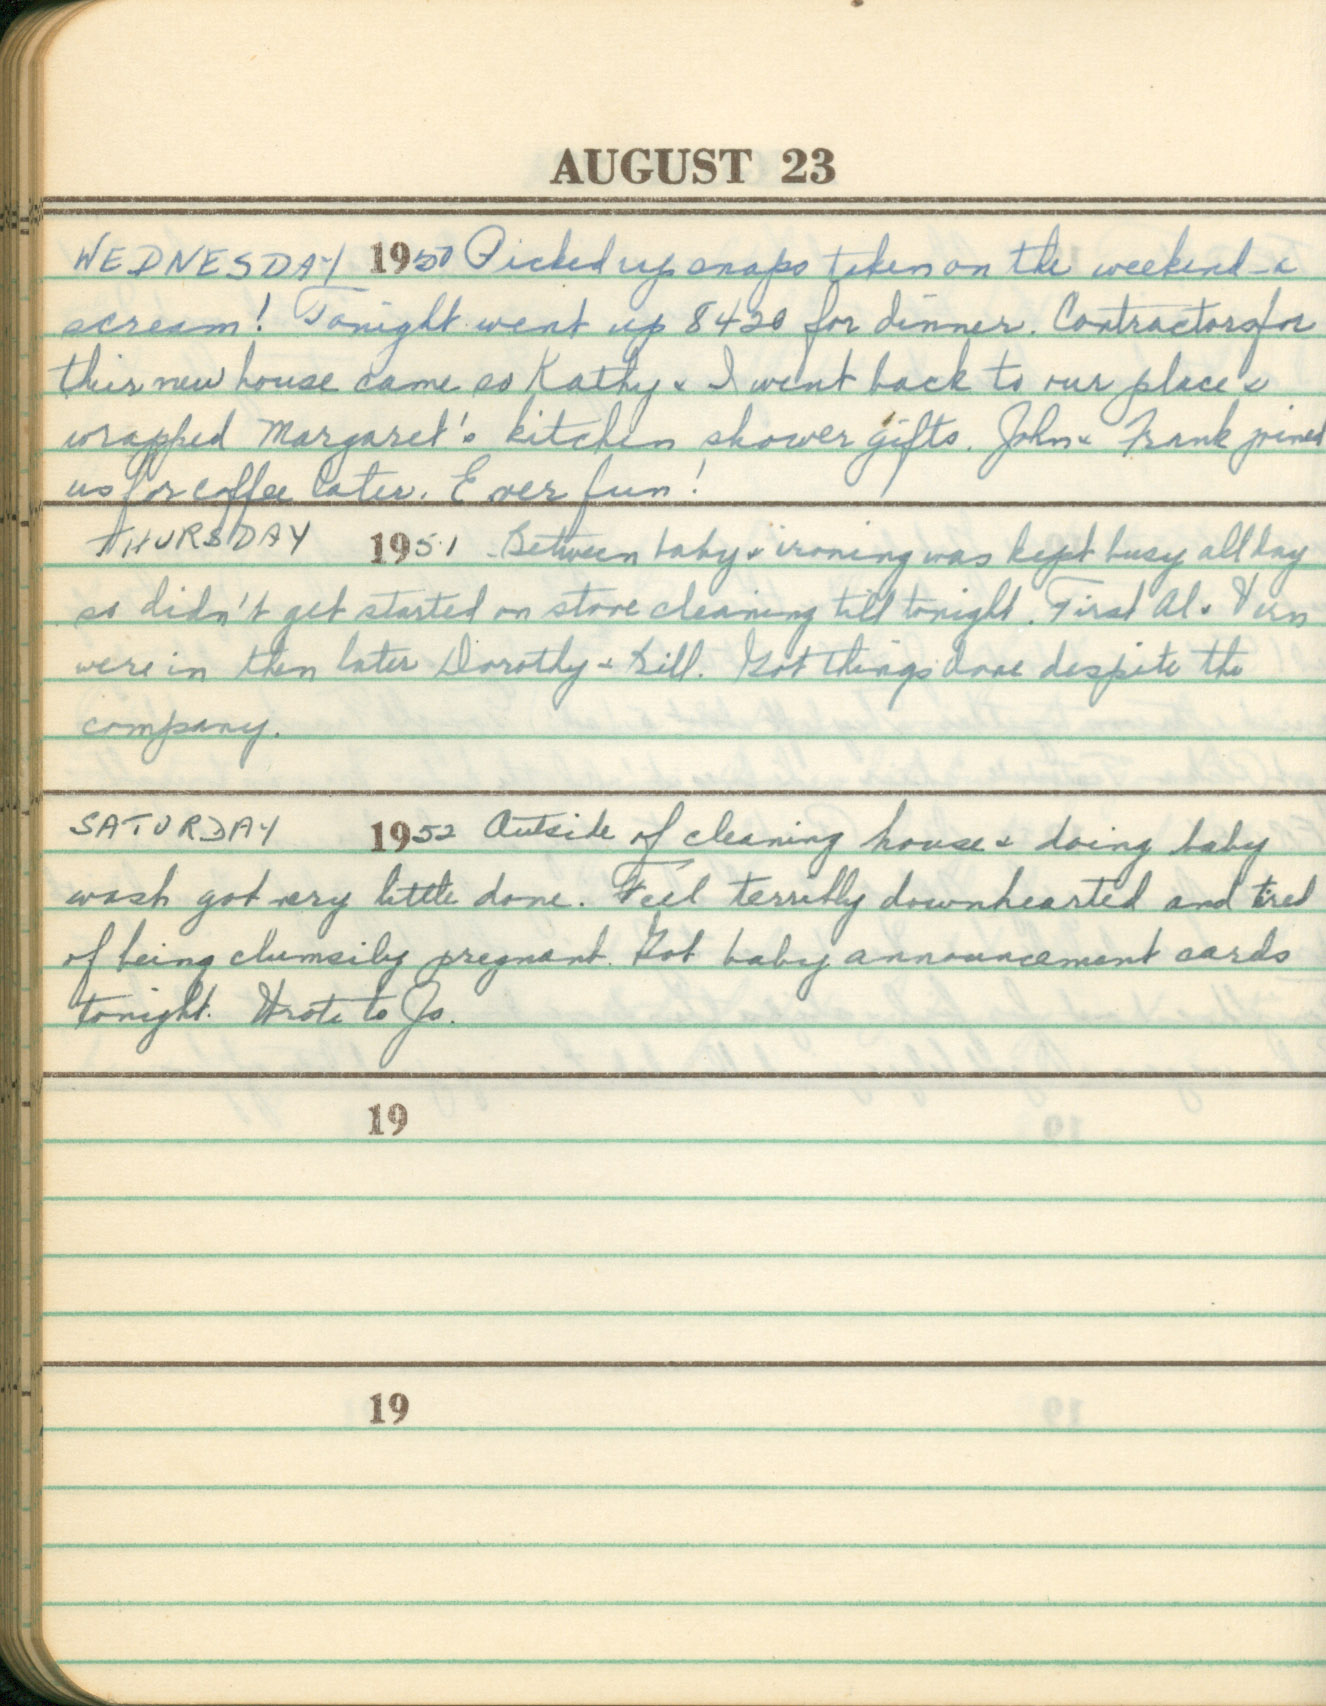 AUGUST 23
WEDNESDAY 1950 Picked up snaps taken on the weekend - a
scream! Tonight went up 8420 for dinner. Contractors for
their new house came so Kathy & I went back to our place &
wrapped Margaret's kitchen shower gifts. John & Frank joined
us for coffee later. Ever fun!
THURSDAY 1951 Between baby & ironing was kept busy all day
so didn't get started on stove cleaning till tonight. First Al & Vern
were in then later Dorothy & Bill. Got things done despite the
company.
SATURDAY 1952 Outside of cleaning house & doing baby
wash got very little done. Feel terribly downhearted and tired
of being clumsily pregnant. Got baby announcement cards
tonight. Wrote to Jo.
19
19